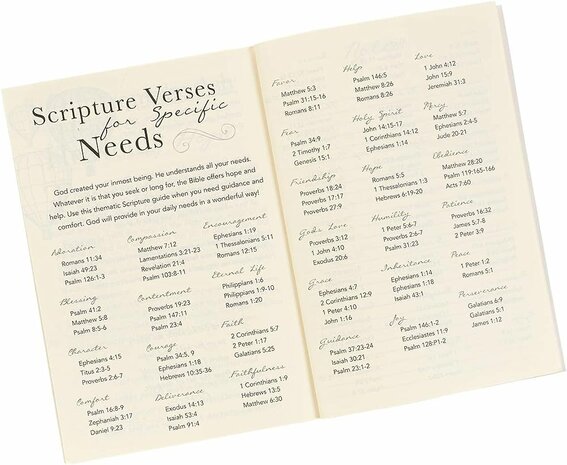 Scripture Verses
for Specific
Needs
God created your inmost being. He understands all your needs.
Whatever it is that you seek or long for, the Bible offers hope and
help. Use this thematic Scripture guide when you need guidance and
comfort. God will provide in your daily needs in a wonderful way!
Adoration
Romans 11:34
Isaiah 49:23
Psalm 126:1-3
Blessing
Psalm 41:2
Matthew 5:8
Psalm 8:5-6
Character
Ephesians 4:15
Titus 2:3-5
Proverbs 2:6-7
Comfort
Psalm 16:8-9
Zephaniah 3:17
Daniel 9:23
Compassion
Matthew 7:12
Lamentations 3:21-23
Revelation 21:4
Psalm 103:8-11
Contentment
Proverbs 19:23
Psalm 147:11
Psalm 23:4
Courage
Psalm 34:5, 9
Ephesians 1:18
Hebrews 10:35-36
Deliverance
Exodus 14:13
Isaiah 53:4
Psalm 91:4
Encouragement
Ephesians 1:19
1 Thessalonians 5:11
Romans 12:15
Eternal Life
Philippians 1:6
Philippians 1:9-10
Romans 1:20
Faith
2 Corinthians 5:7
2 Peter 1:17
Galatians 5:25
Faithfulness
1 Corinthians 1:9
Hebrews 13:5
Matthew 6:30
Favor
Matthew 5:3
Psalm 31:15-16
Romans 8:11
Fear
Psalm 34:9
2 Timothy 1:7
Genesis 15:1
Friendship
Proverbs 18:24
Proverbs 17:17
Proverbs 27:9
God's Love
Proverbs 3:12
1 John 4:10
Exodus 20:6
Grace
Ephesians 4:7
2 Corinthians 12:9
1 Peter 4:10
John 1:16
Guidance
Psalm 37:23-24
Isaiah 30:21
Psalm 23:1-2
Help
Psalm 146:5
Matthew 8:26
Romans 8:26
Holy Spirit
John 14:15-17
1 Corinthians 14:12
Ephesians 1:14
Hope
Romans 5:5
1 Thessalonians 1:3
Hebrews 6:19-20
Humility
1 Peter 5:6-7
Proverbs 2:6-7
Psalm 31:23
Inheritance
Ephesians 1:14
Ephesians 1:18
Isaiah 43:1
Joy
Psalm 146:1-2
Ecclesiastes 11:9
Psalm 128:P1-2
Love
1 John 4:12
John 15:9
Jeremiah 31:3
Mercy
Matthew 5:7
Ephesians 2:4-5
Jude 20-21
Obedience
Matthew 28:20
Psalm 119:165-166
Acts 7:60
Patience
Proverbs 16:32
James 5:7-8
2 Peter 3:9
Peace
1 Peter 1:2
Romans 5:1
Perseverance
Galatians 6:9
Galatians 5:1
James 1:12